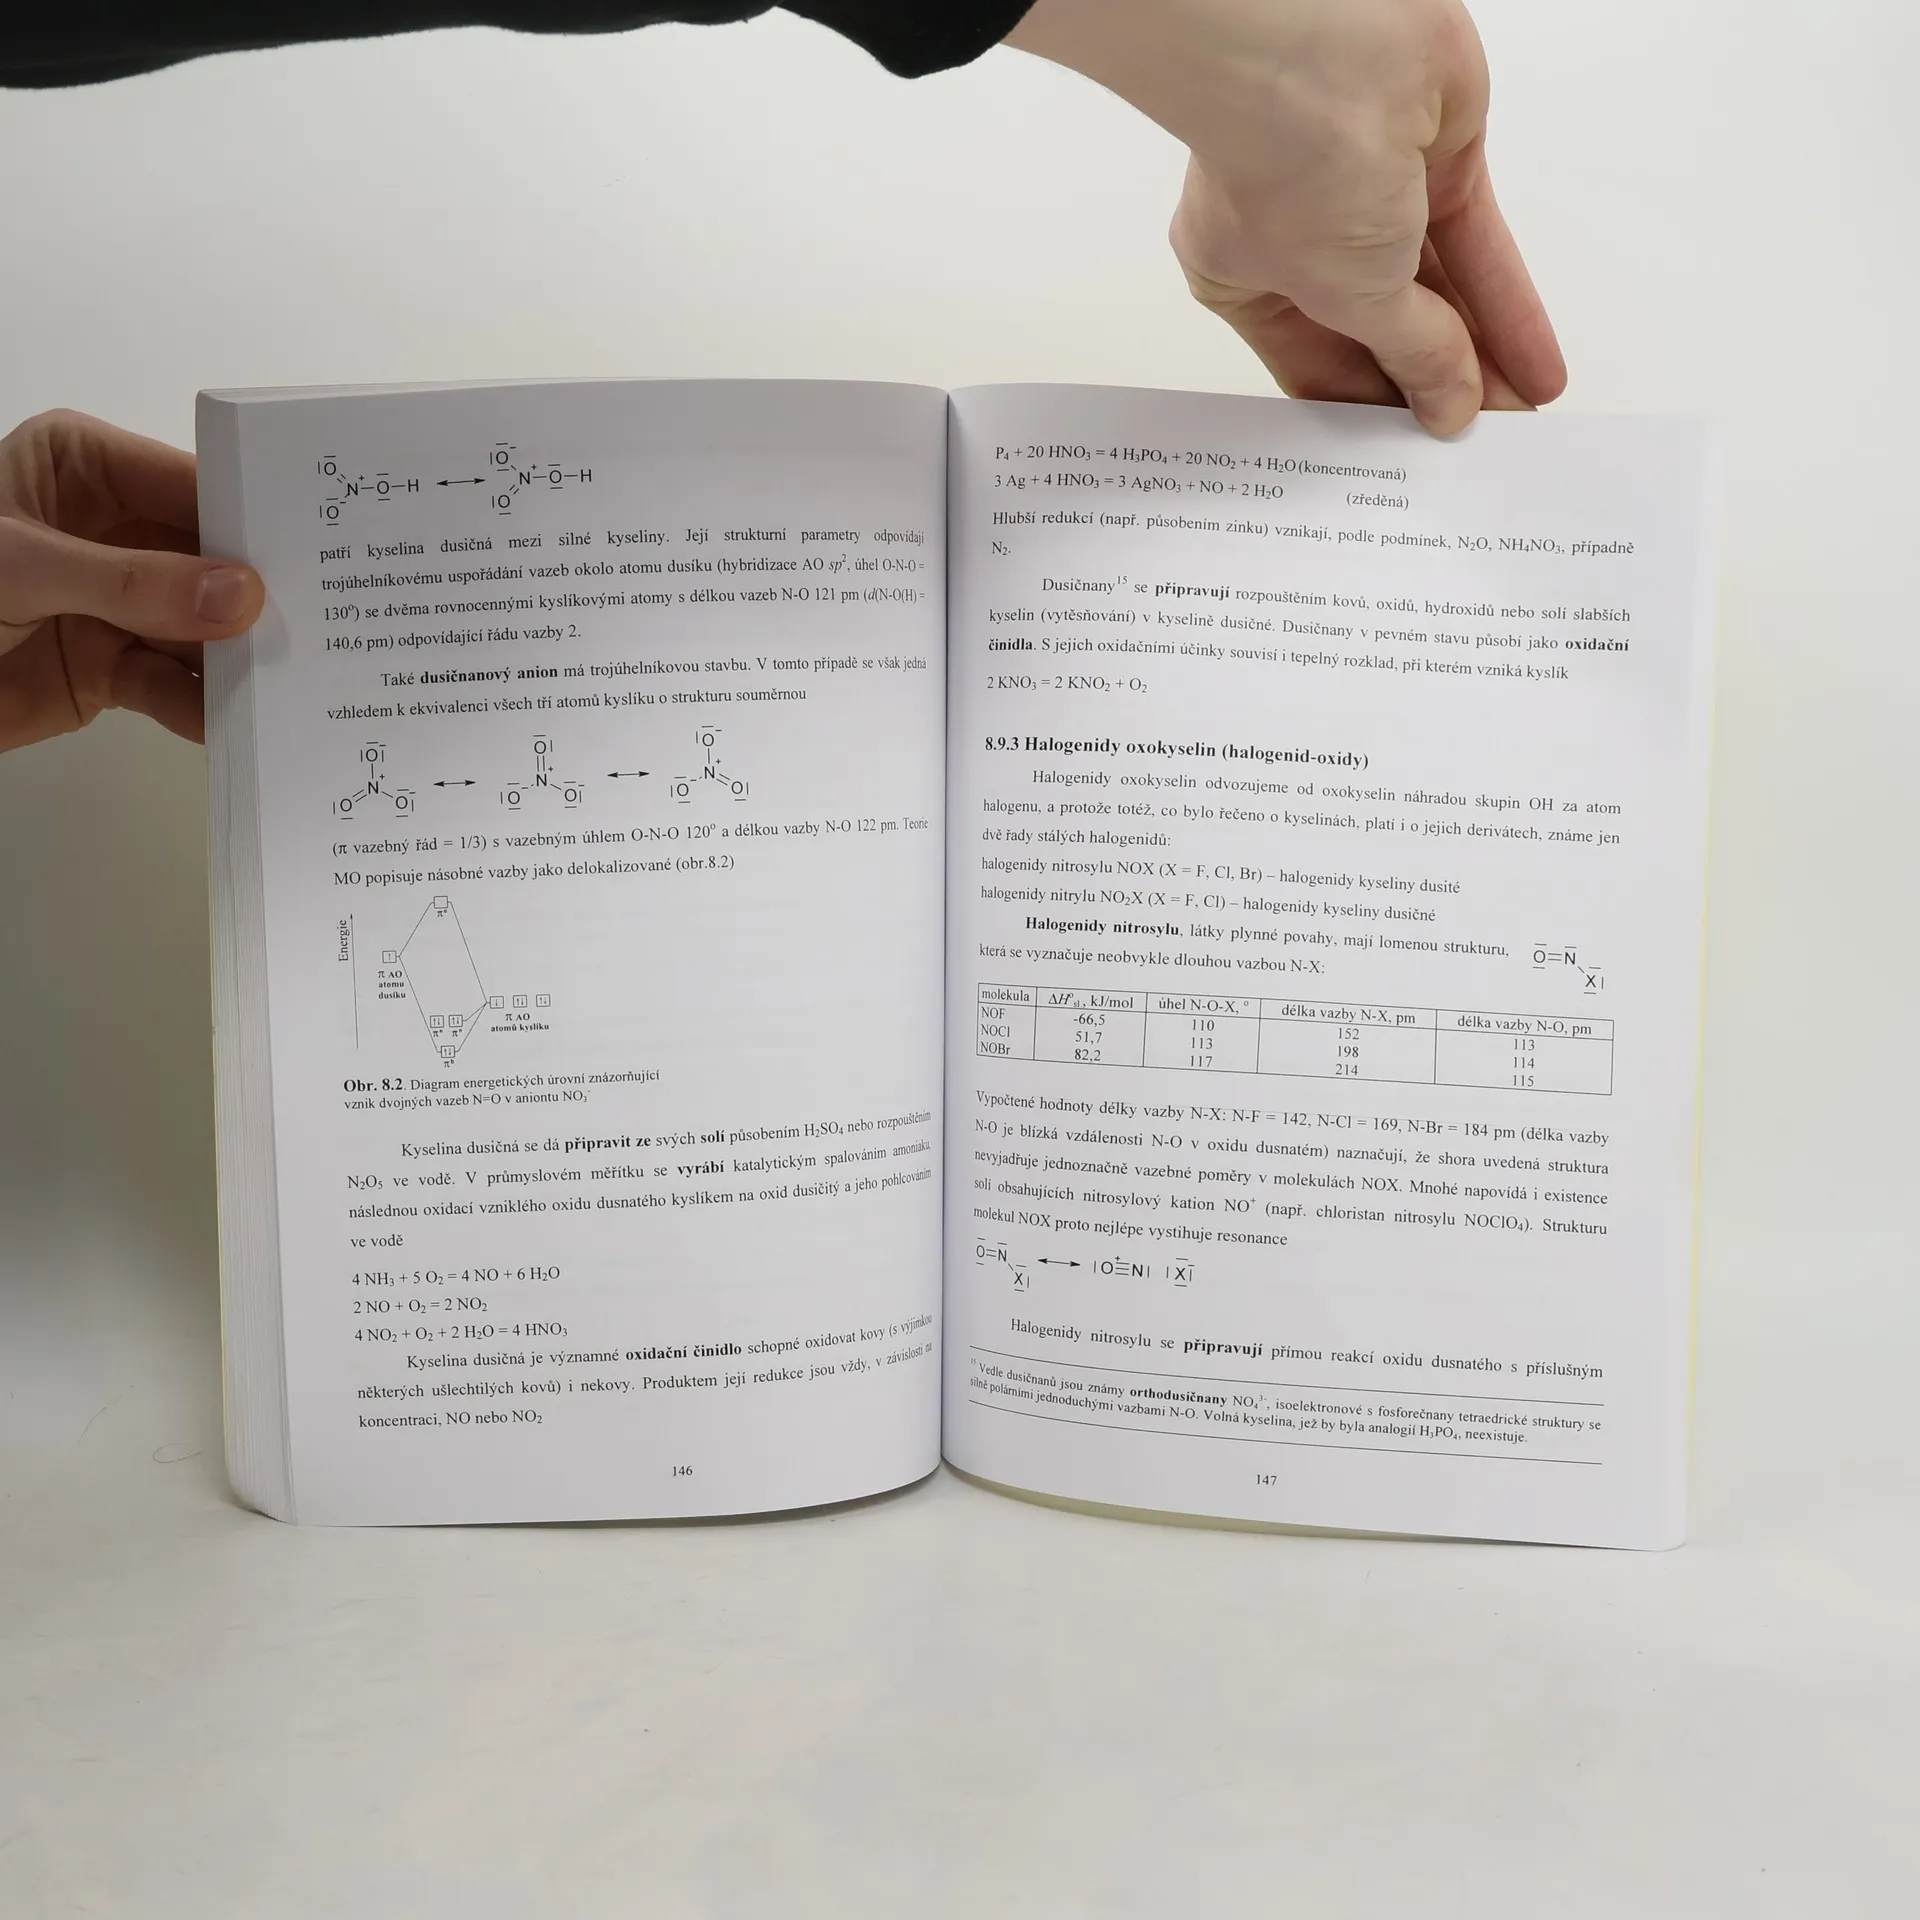 patří kyselina dusičná mezi silné kyseliny. Její strukturní parametry odpovídají
trojúhelníkovému uspořádání vazeb okolo atomu dusíku (hybridizace AO sp², úhel O-N-O =
130°) se dvěma rovnocennými kyslíkovými atomy s délkou vazeb N-O 121 pm (d(N-O(H) =
140,6 pm) odpovídající řádu vazby 2.
Také dusičnanový anion má trojúhelníkovou stavbu. V tomto případě se však jedná
vzhledem k ekvivalenci všech tří atomů kyslíku o strukturu souměrnou
(π vazebný řád = 1/3) s vazebným úhlem O-N-O 120° a délkou vazby N-O 122 pm. Teorie
MO popisuje násobné vazby jako delokalizované (obr.8.2)
Energie
π AO
atomu
dusíku
π AO
atomů kyslíku
Obr. 8.2. Diagram energetických úrovní znázorňující
vznik dvojných vazeb N=O v aniontu NO₃⁻
Kyselina dusičná se dá připravit ze svých solí působením H₂SO₄ nebo rozpouštěním
N₂O₅ ve vodě. V průmyslovém měřítku se vyrábí katalytickým spalováním amoniaku,
následnou oxidací vzniklého oxidu dusnatého kyslíkem na oxid dusičitý a jeho pohlcováním
ve vodě
4 NH₃ + 5 O₂ = 4 NO + 6 H₂O
2 NO + O₂ = 2 NO₂
4 NO₂ + O₂ + 2 H₂O = 4 HNO₃
Kyselina dusičná je významné oxidační činidlo schopné oxidovat kovy (s výjimkou
některých ušlechtilých kovů) i nekovy. Produktem její redukce jsou vždy, v závislosti na
koncentraci, NO nebo NO₂
146
P₄ + 20 HNO₃ = 4 H₃PO₄ + 20 NO₂ + 4 H₂O (koncentrovaná)
3 Ag + 4 HNO₃ = 3 AgNO₃ + NO + 2 H₂O (zředěná)
Hlubší redukcí (např. působením zinku) vznikají, podle podmínek, N₂O, NH₄NO₃, případně
N₂.
Dusičnany¹⁵ se připravují rozpouštěním kovů, oxidů, hydroxidů nebo solí slabších
kyselin (vytěsňování) v kyselině dusičné. Dusičnany v pevném stavu působí jako oxidační
činidla. S jejich oxidačními účinky souvisí i tepelný rozklad, při kterém vzniká kyslík
2 KNO₃ = 2 KNO₂ + O₂
8.9.3 Halogenidy oxokyselin (halogenid-oxidy)
Halogenidy oxokyselin odvozujeme od oxokyselin náhradou skupin OH za atom
halogenu, a protože totéž, co bylo řečeno o kyselinách, platí i o jejich derivátech, známe jen
dvě řady stálých halogenidů:
halogenidy nitrosylu NOX (X = F, Cl, Br) – halogenidy kyseliny dusité
halogenidy nitrylu NO₂X (X = F, Cl) – halogenidy kyseliny dusičné
Halogenidy nitrosylu, látky plynné povahy, mají lomenou strukturu,
která se vyznačuje neobvykle dlouhou vazbou N-X:
molekula ΔH°sl, kJ/mol úhel N-O-X, ° délka vazby N-X, pm délka vazby N-O, pm
NOF -66,5 110 152 113
NOCl 51,7 113 198 114
NOBr 82,2 117 214 115
Vypočtené hodnoty délky vazby N-X: N-F = 142, N-Cl = 169, N-Br = 184 pm (délka vazby
N-O je blízká vzdálenosti N-O v oxidu dusnatém) naznačují, že shora uvedená struktura
nevyjadřuje jednoznačně vazebné poměry v molekulách NOX. Mnohé napovídá i existence
solí obsahujících nitrosylový kation NO⁺ (např. chloristan nitrosylu NOClO₄). Strukturu
molekul NOX proto nejlépe vystihuje resonance
Halogenidy nitrosylu se připravují přímou reakcí oxidu dusnatého s příslušným
¹⁵ Vedle dusičnanů jsou známy orthodusičnany NO₄³⁻, isoelektronové s fosforečnany tetraedrické struktury se
silně polárními jednoduchými vazbami N-O. Volná kyselina, jež by byla analogií H₃PO₄, neexistuje.
147